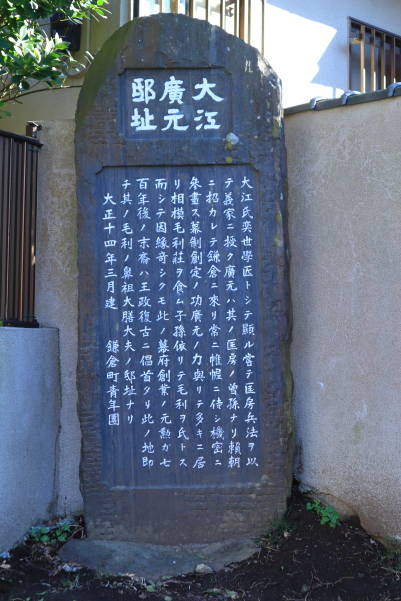 大江
廣元
邸址
大江氏奕世學匠トシテ顯ル甞テ匡房兵法ヲ以
テ義家ニ授ク廣元ハ其ノ匡房ノ曽孫ナリ頼朝
ニ招カレテ鎌倉ニ來リ常ニ帷幄ニ侍シ機密ニ
參畫ス幕制創定ノ功廣元ノ力與リテ多キニ居
リ相模毛利莊ヲ食ム子孫依リテ毛利ヲ氏トス
而シテ因縁奇シクモ此ノ幕府創業ノ元勲ガ七
百年後ノ末裔ハ王政復古ニ倡首タリ此ノ地即
チ其ノ毛利ノ鼻祖大膳大夫ノ邸址ナリ
大正十四年三月建　鎌倉町青年團